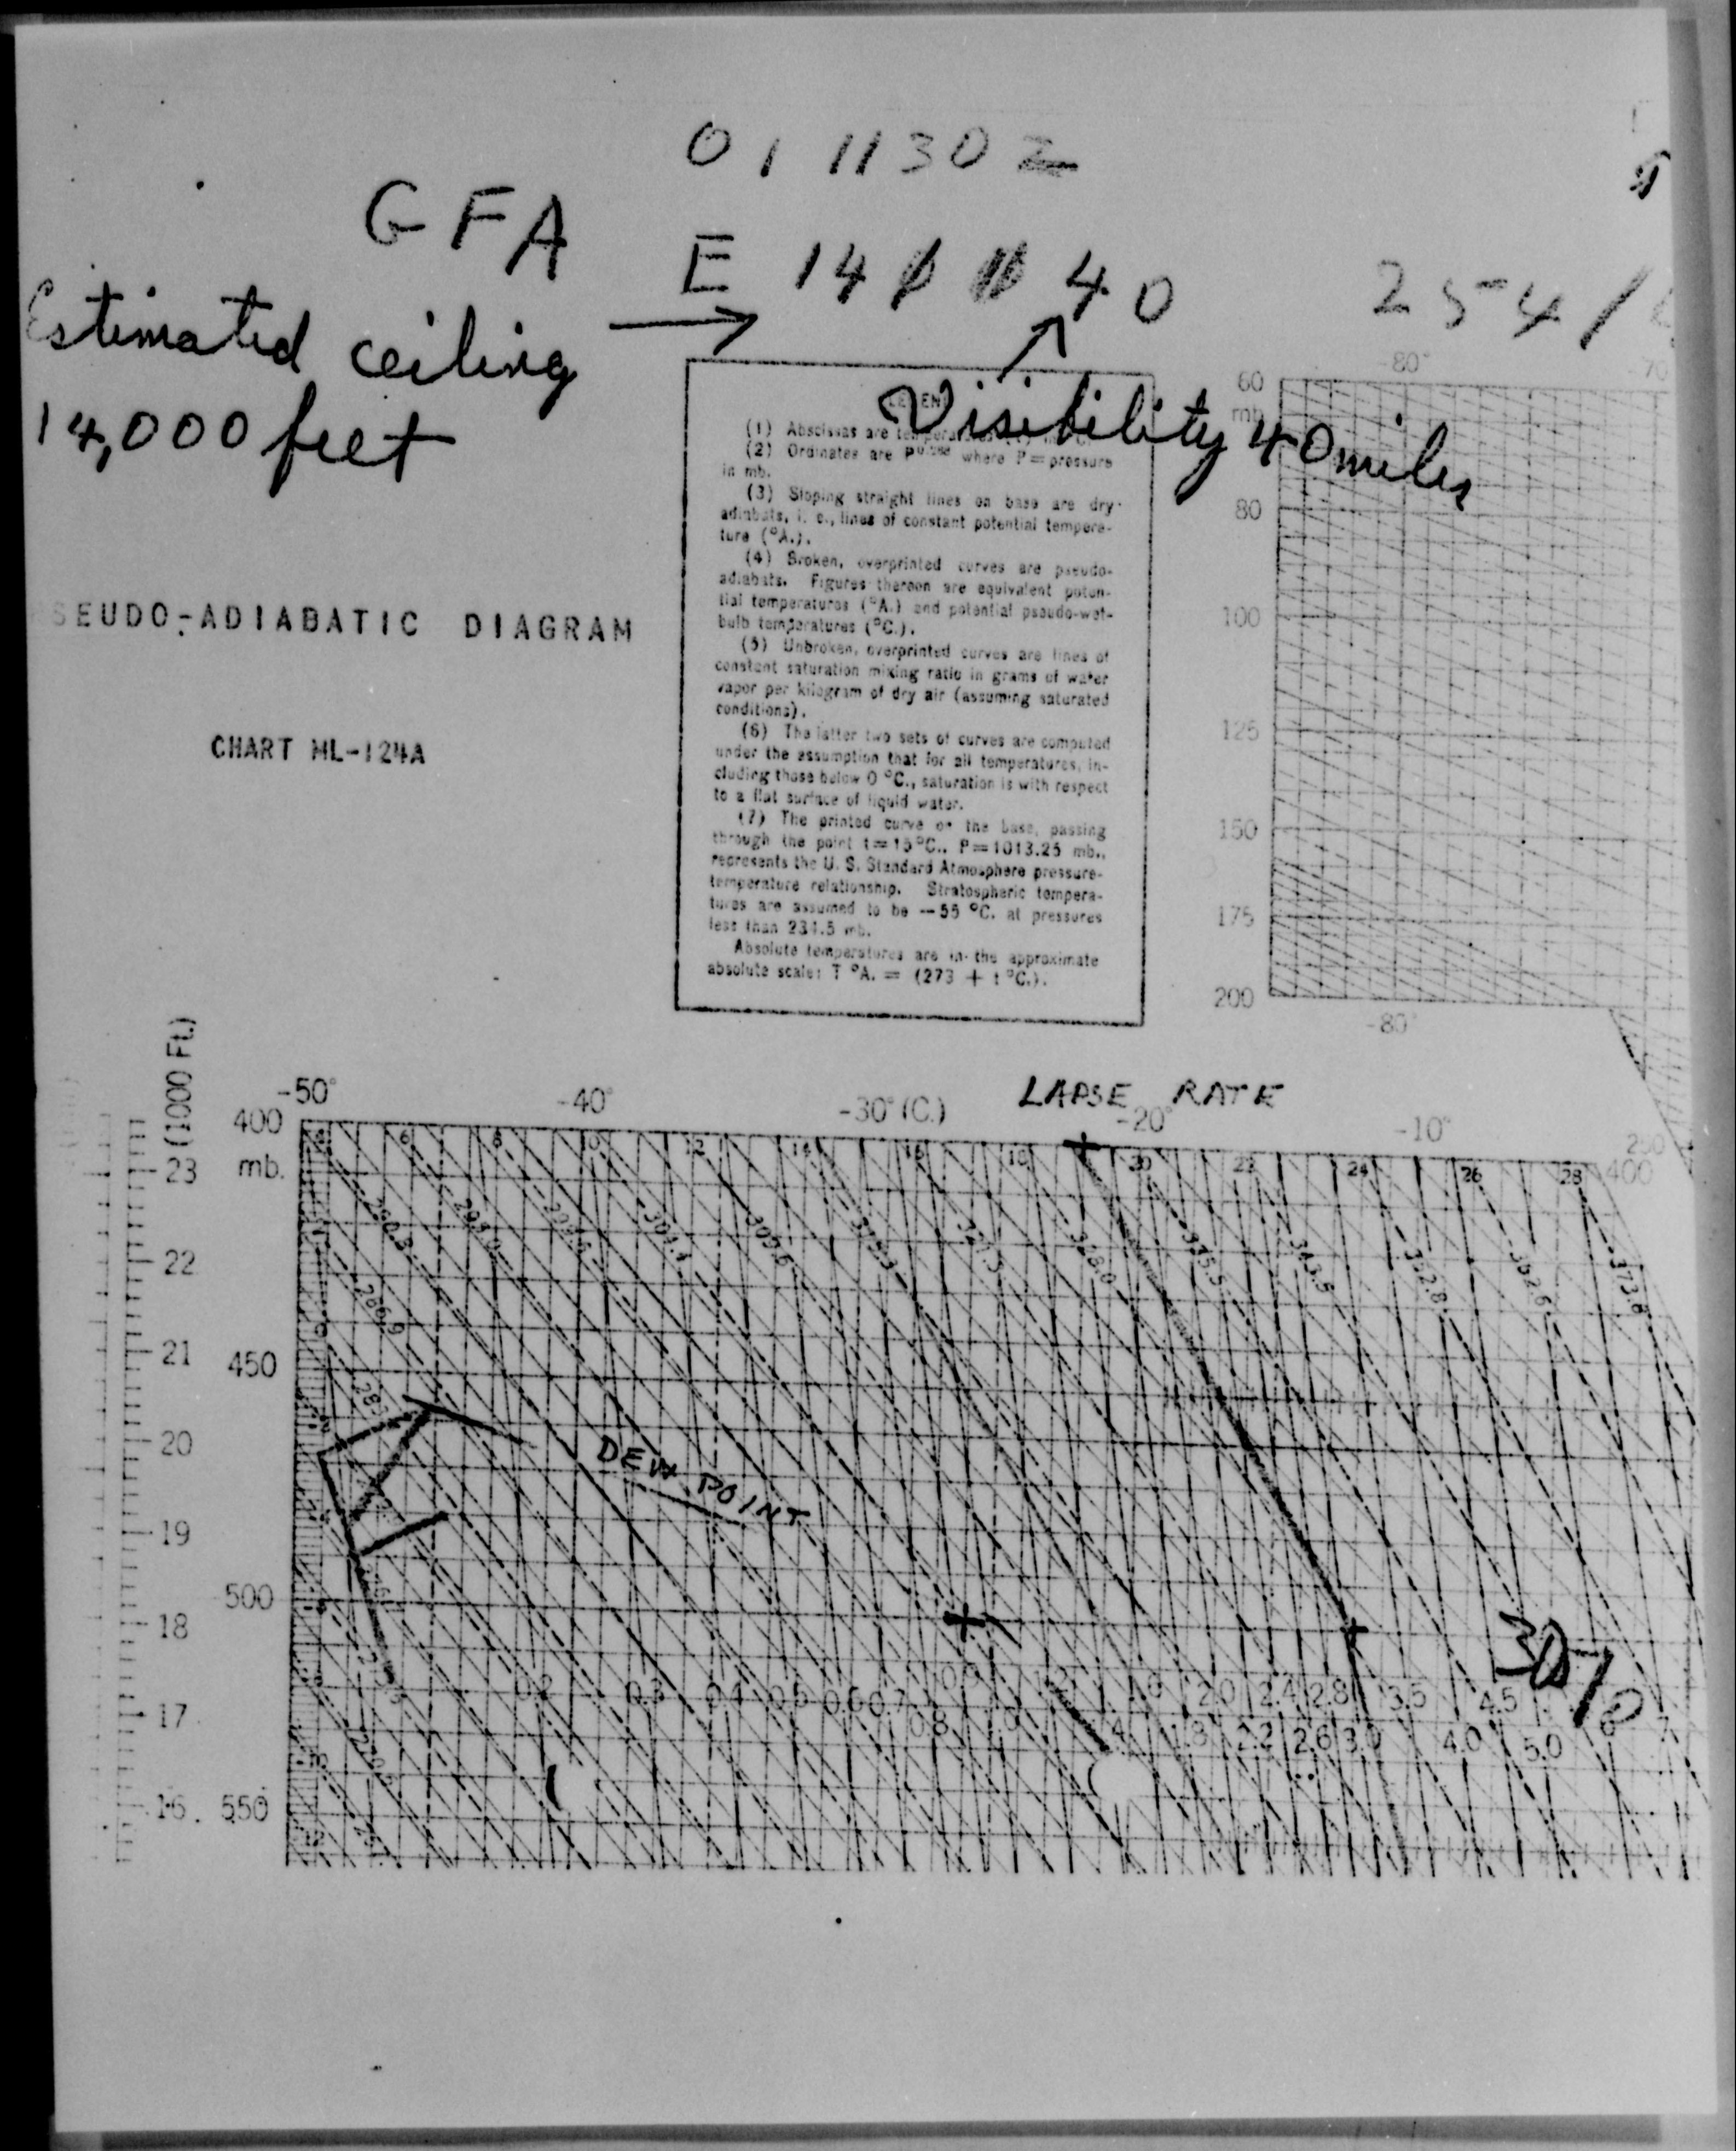 011130Z
GFA
E 14
40
254/
Estimated ceiling
14,000 feet
Visibility 40 miles
(1) Abscissas are
(2) Ordinates are where P=pressure
in mb.
(3) Sloping straight lines on base are dry-
adiabats, i. e., lines of constant potential tempera-
ture (°A.).
(4) Broken, overprinted curves are pseudo-
adiabats. Figures thereon are equivalent poten-
tial temperatures (°A.) and potential pseudo-wet-
bulb temperatures (°C.).
(5) Unbroken, overprinted curves are lines of
constant saturation mixing ratio in grams of water
vapor per kilogram of dry air (assuming saturated
conditions).
(6) The latter two sets of curves are computed
under the assumption that for all temperatures, in-
cluding those below 0 °C., saturation is with respect
to a flat surface of liquid water.
(7) The printed curve on the base, passing
through the point t=15°C., P=1013.25 mb.,
represents the U. S. Standard Atmosphere pressure-
temperature relationship. Stratospheric tempera-
tures are assumed to be -55 °C. at pressures
less than 234.5 mb.
Absolute temperatures are in the approximate
absolute scale: T °A. = (273 + t °C.).
SEUDO-ADIABATIC DIAGRAM
CHART ML-124A
-80° -70
60
mb
80
100
125
150
175
200
-80°
(1000 Ft.)
LAPSE RATE
-50° -40° -30°(C.) -20° -10°
400
mb.
250
400
6 8 10 12 14 16 18 20 22 24 26 28
23
22
21
450
20
19
500
18
17
16
550
290.3
301.4
328.0
335.5
343.5
352.8
362.6
373.8
286.9
DEW POINT
0.2 0.3 0.4 0.5 0.6 0.7 0.9 2.0 2.4 2.8 3.5 4.5
0.8 1.8 2.2 2.6 3.0 4.0 5.0 6 7
12